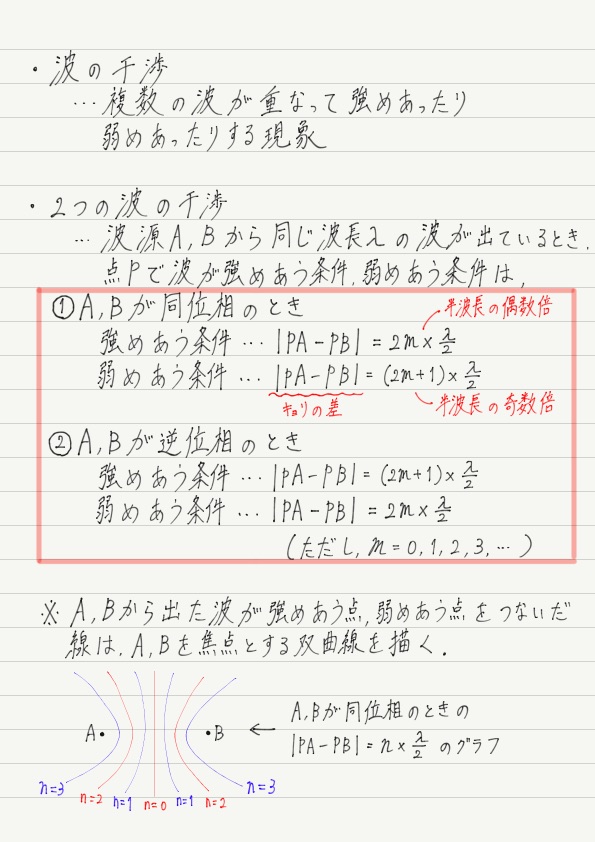 ・波の干渉
… 複数の波が重なって強めあったり
弱めあったりする現象
・2つの波の干渉
… 波源A,Bから同じ波長λの波が出ているとき,
点Pで波が強めあう条件,弱めあう条件は,
①A,Bが同位相のとき
半波長の偶数倍
強めあう条件 … |PA-PB| = 2m×λ/2
弱めあう条件 … |PA-PB| = (2m+1)×λ/2
キョリの差
半波長の奇数倍
②A,Bが逆位相のとき
強めあう条件 … |PA-PB| = (2m+1)×λ/2
弱めあう条件 … |PA-PB| = 2m×λ/2
(ただし, m = 0, 1, 2, 3, …)
※ A,Bから出た波が強めあう点,弱めあう点をつないだ
線は, A,Bを焦点とする双曲線を描く.
A
B
← A,Bが同位相のときの
|PA-PB| = n×λ/2 のグラフ
n=3
n=2
n=1
n=0
n=1
n=2
n=3